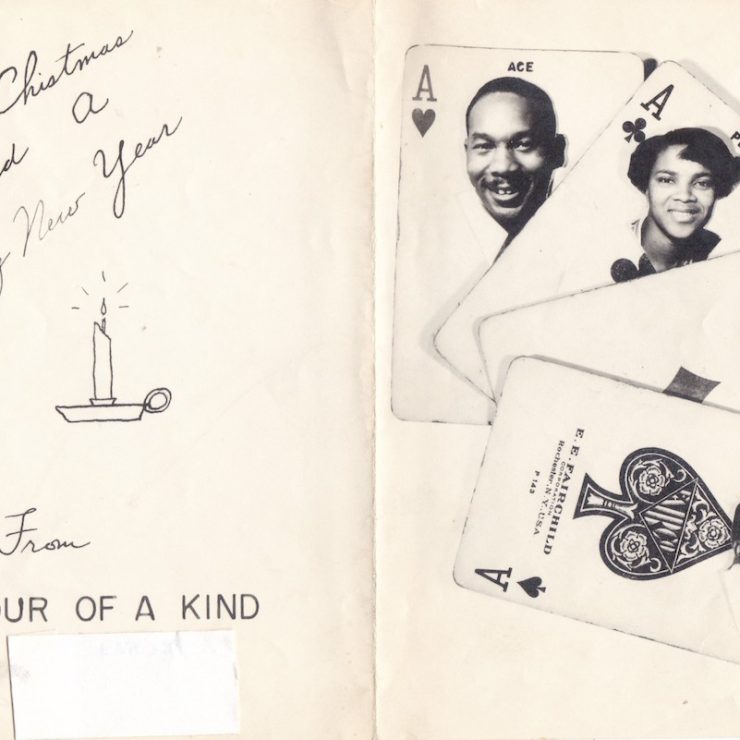 Chistmas
d a
y New Year
From
OUR OF A KIND
A
ACE
A
P
E. E. FAIRCHILD
CORPORATION
Rochester, N.Y. USA
P 142
A